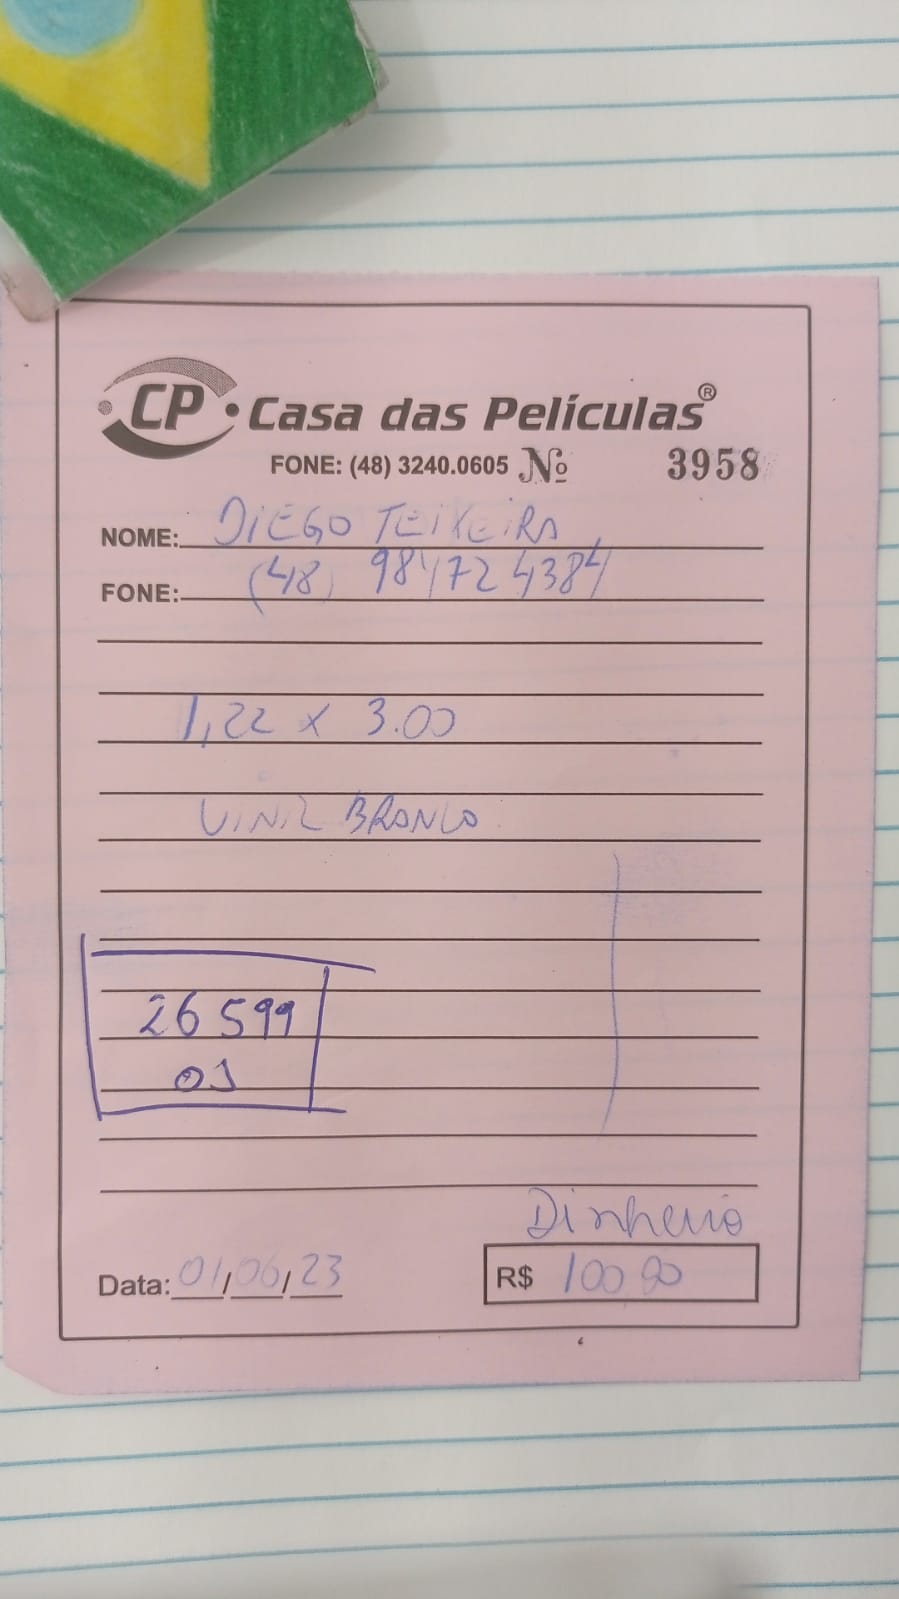 CP Casa das Películas®
FONE: (48) 3240.0605 Nº 3958
NOME: DIEGO TEIXEIRA
FONE: (48) 984724384
1,22 x 3.00
VINIL BRANCO
26599
01
Dinheiro
Data: 01/06/23 R$ 100,00